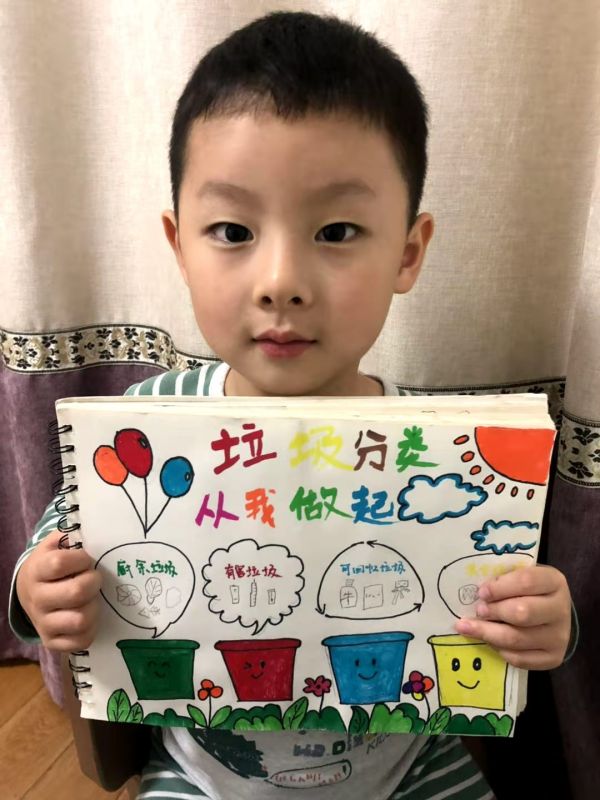 垃圾分类
从我做起
厨余垃圾
有害垃圾
可回收垃圾